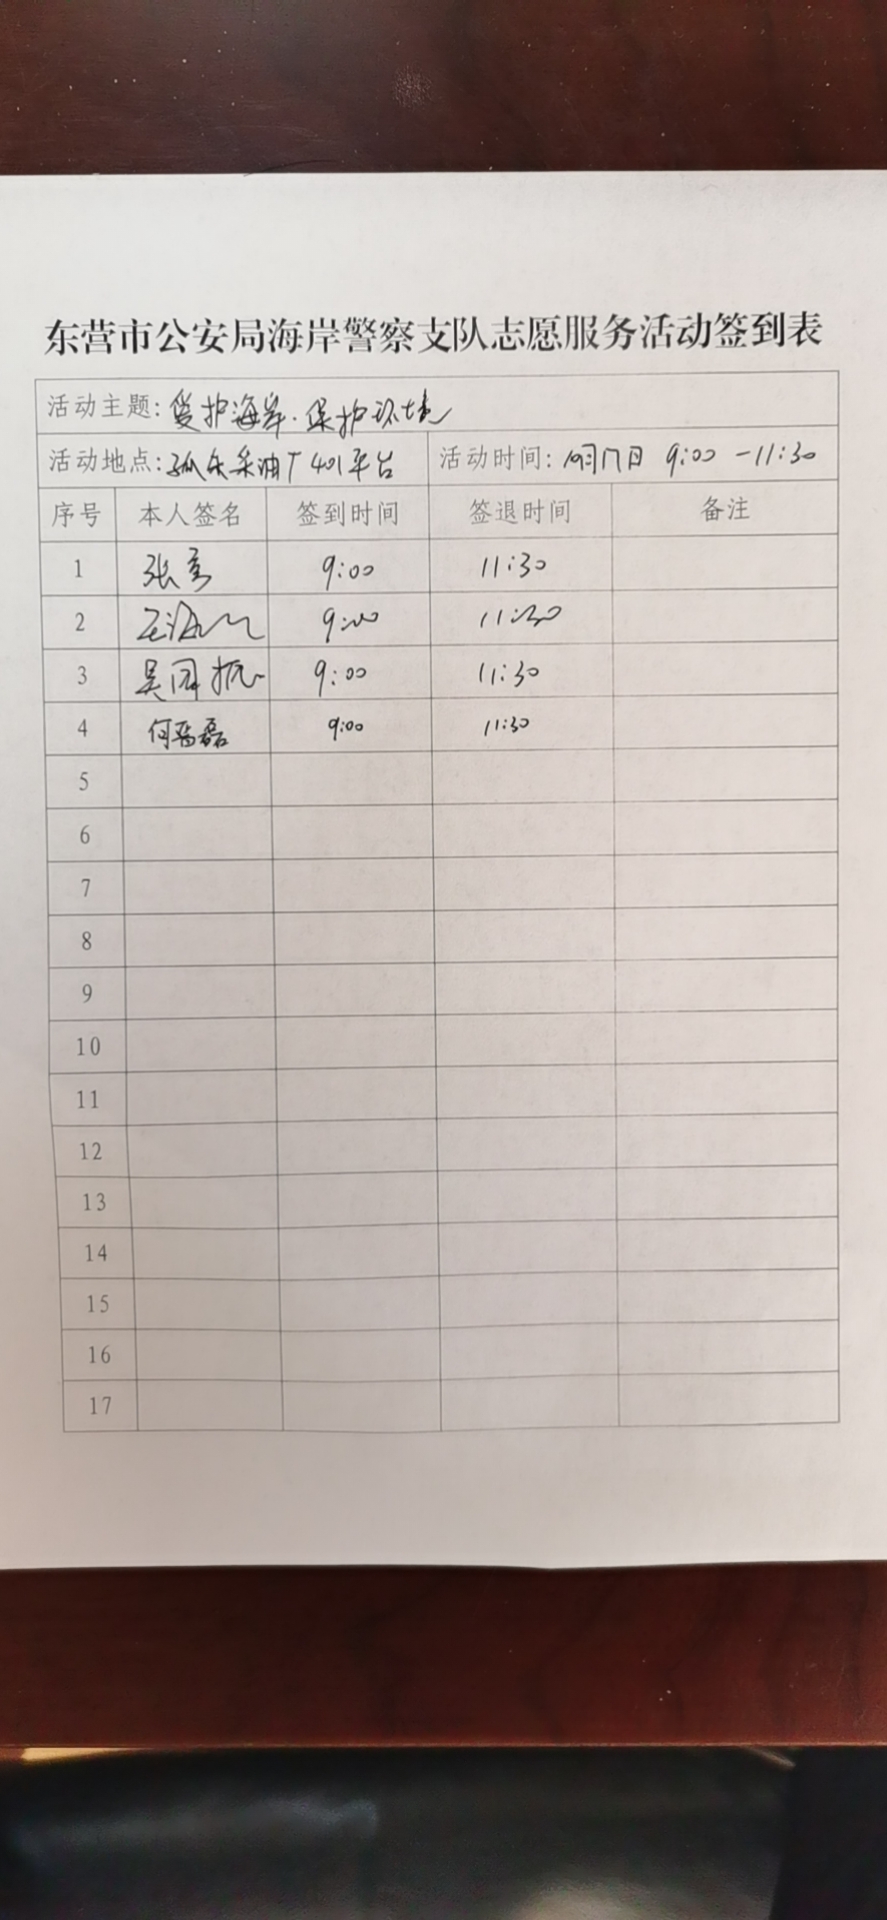 东营市公安局海岸警察支队志愿服务活动签到表
活动主题：爱护海岸.保护环境
活动地点：孤东采油厂401平台 活动时间：10月17日 9:00-11:30
序号 本人签名 签到时间 签退时间 备注
1 张 9:00 11:30
2 9:00 11:30
3 吴国振 9:00 11:30
4 何晋磊 9:00 11:30
5
6
7
8
9
10
11
12
13
14
15
16
17